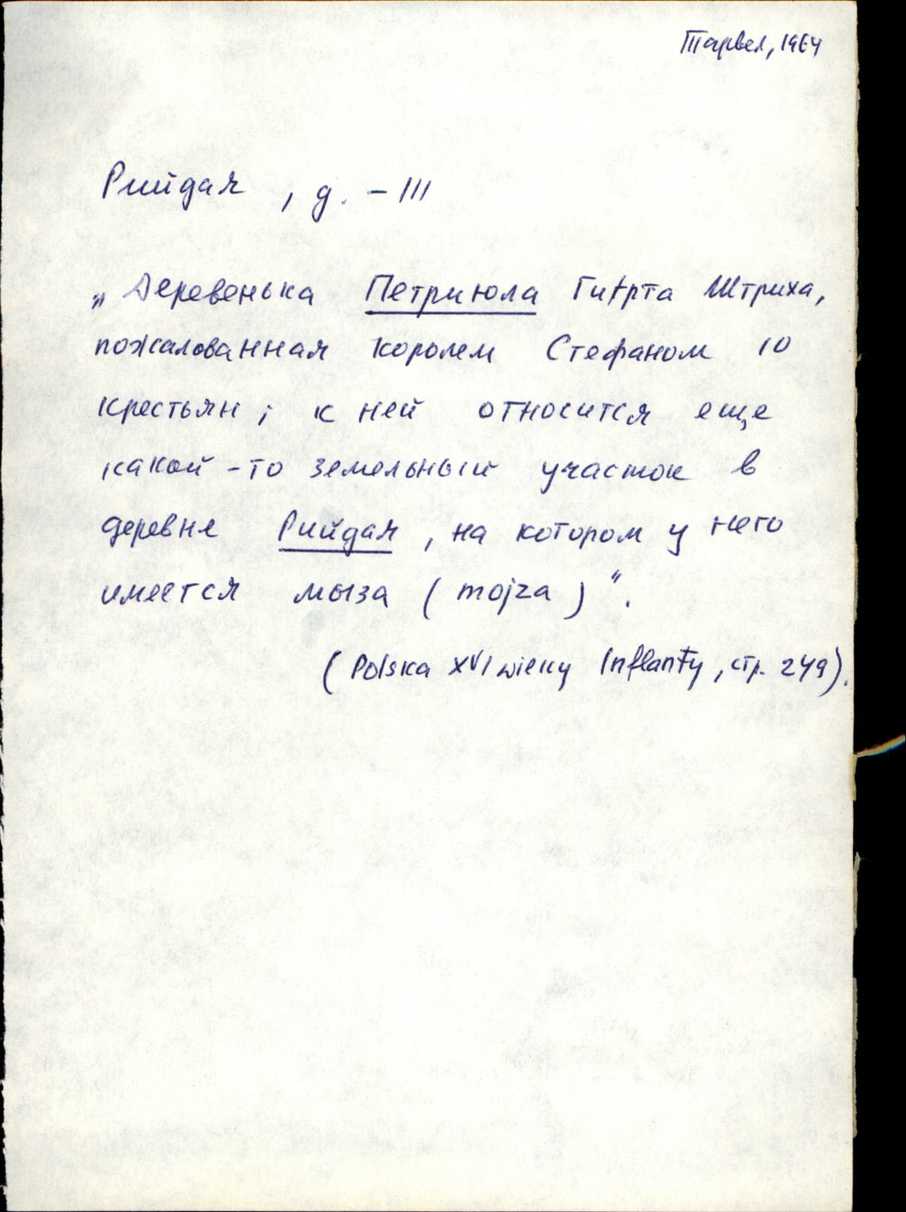 Тарвел, 1964
Рийдая, д. - III
„Деревенька Петриюла Гиерта Штриха,
пожалованная королем Стефаном 10
крестьян; к ней относится еще
какой-то земельный участок в
деревне Рийдая, на котором у него
имеется мыза (mojza)".
(Polska XVI wieku Inflanty, стр. 249).